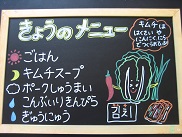 きょうのメニュー
ごはん
キムチスープ
ポークしゅうまい
こんぶいりきんぴら
ぎゅうにゅう
キムチは
はくさいや
にんにくに
つくられるよ